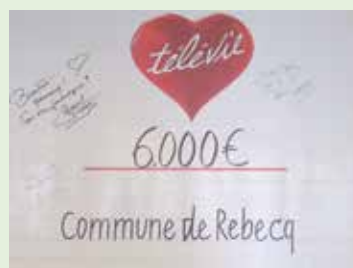 télévie
6.000€
Commune de Rebecq